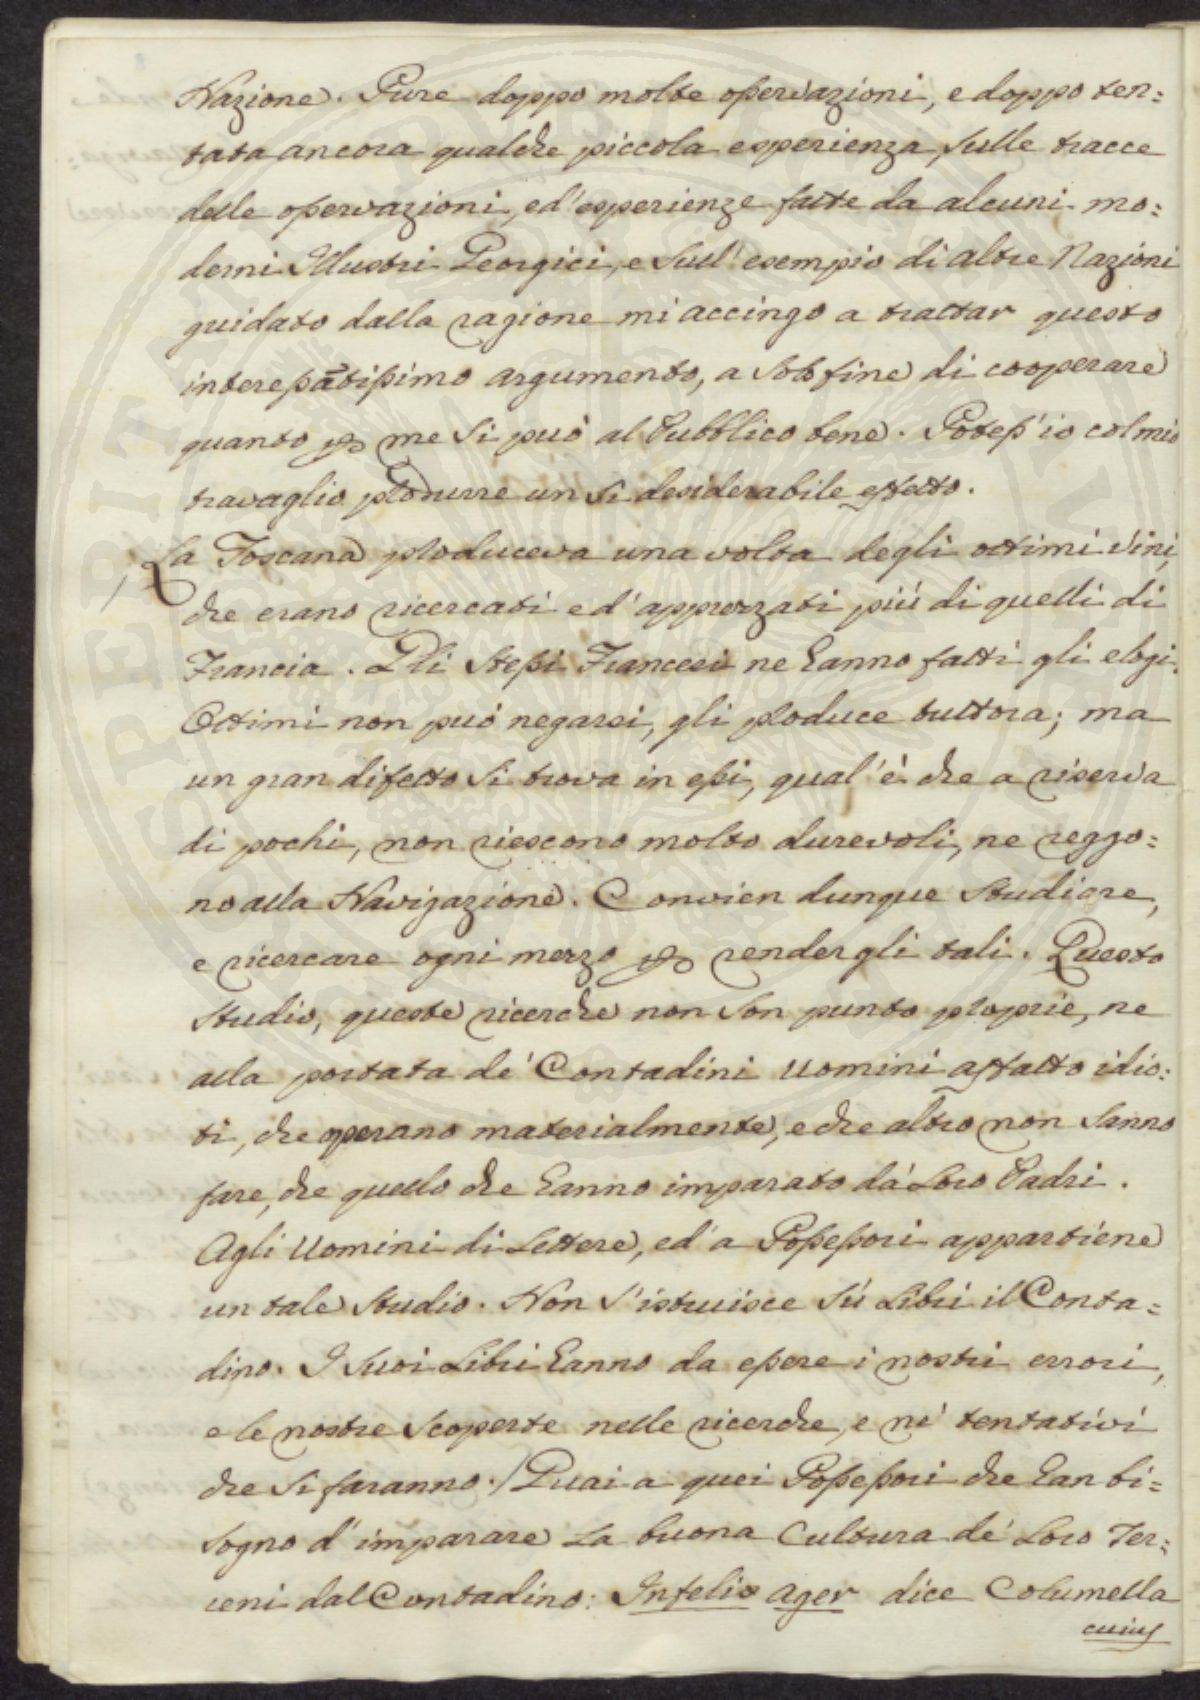 Nazione. Pure doppo molte osservazioni, e doppo ten=
tata ancora qualche piccola esperienza, sulle tracce
delle osservazioni, ed' esperienze fatte da alcuni mo=
derni Illustri Georgici, e sull' esempio di altre Nazioni
guidato dalla ragione mi accingo a trattar questo
interessãtissimo argumento, a solo fine di cooperare
quanto per me si può al Pubblico bene. Potess' io col mio
travaglio produrre un sì desiderabile effetto.
/ La Toscana produceva una volta degli ottimi Vini,
che erano ricercati ed' apprezzati più di quelli di
Francia. Gli stessi Francesi ne hanno fatti gli elogi.
Ottimi non può negarsi, gli produce tuttora; ma
un gran difetto si trova in essi, qual' è che a riserva
di pochi, non riescono molto durevoli, ne reggo=
no alla Navigazione. Convien dunque studiare,
e ricercare ogni mezzo per rendergli tali. Questo
studio, queste ricerche non son punto proprie, ne
alla portata de' Contadini Uomini affatto idio=
ti, che operano materialmente, e che altro non sanno
fare, che quello che hanno imparato dà Loro Padri.
Agli Uomini di Lettere, ed' a Possessori appartiene
un tale studio. Non s'istruisce sù Libri il Conta=
dino. I suoi Libri hanno da essere i nostri errori,
e le nostre scoperte nelle ricerche, e ne' tentativi
che si faranno./ Guai a quei Possessori che han bi=
sogno d' imparare la buona Cultura de' Loro Ter=
reni dal Contadino: Infelix Ager dice Columella
cuius